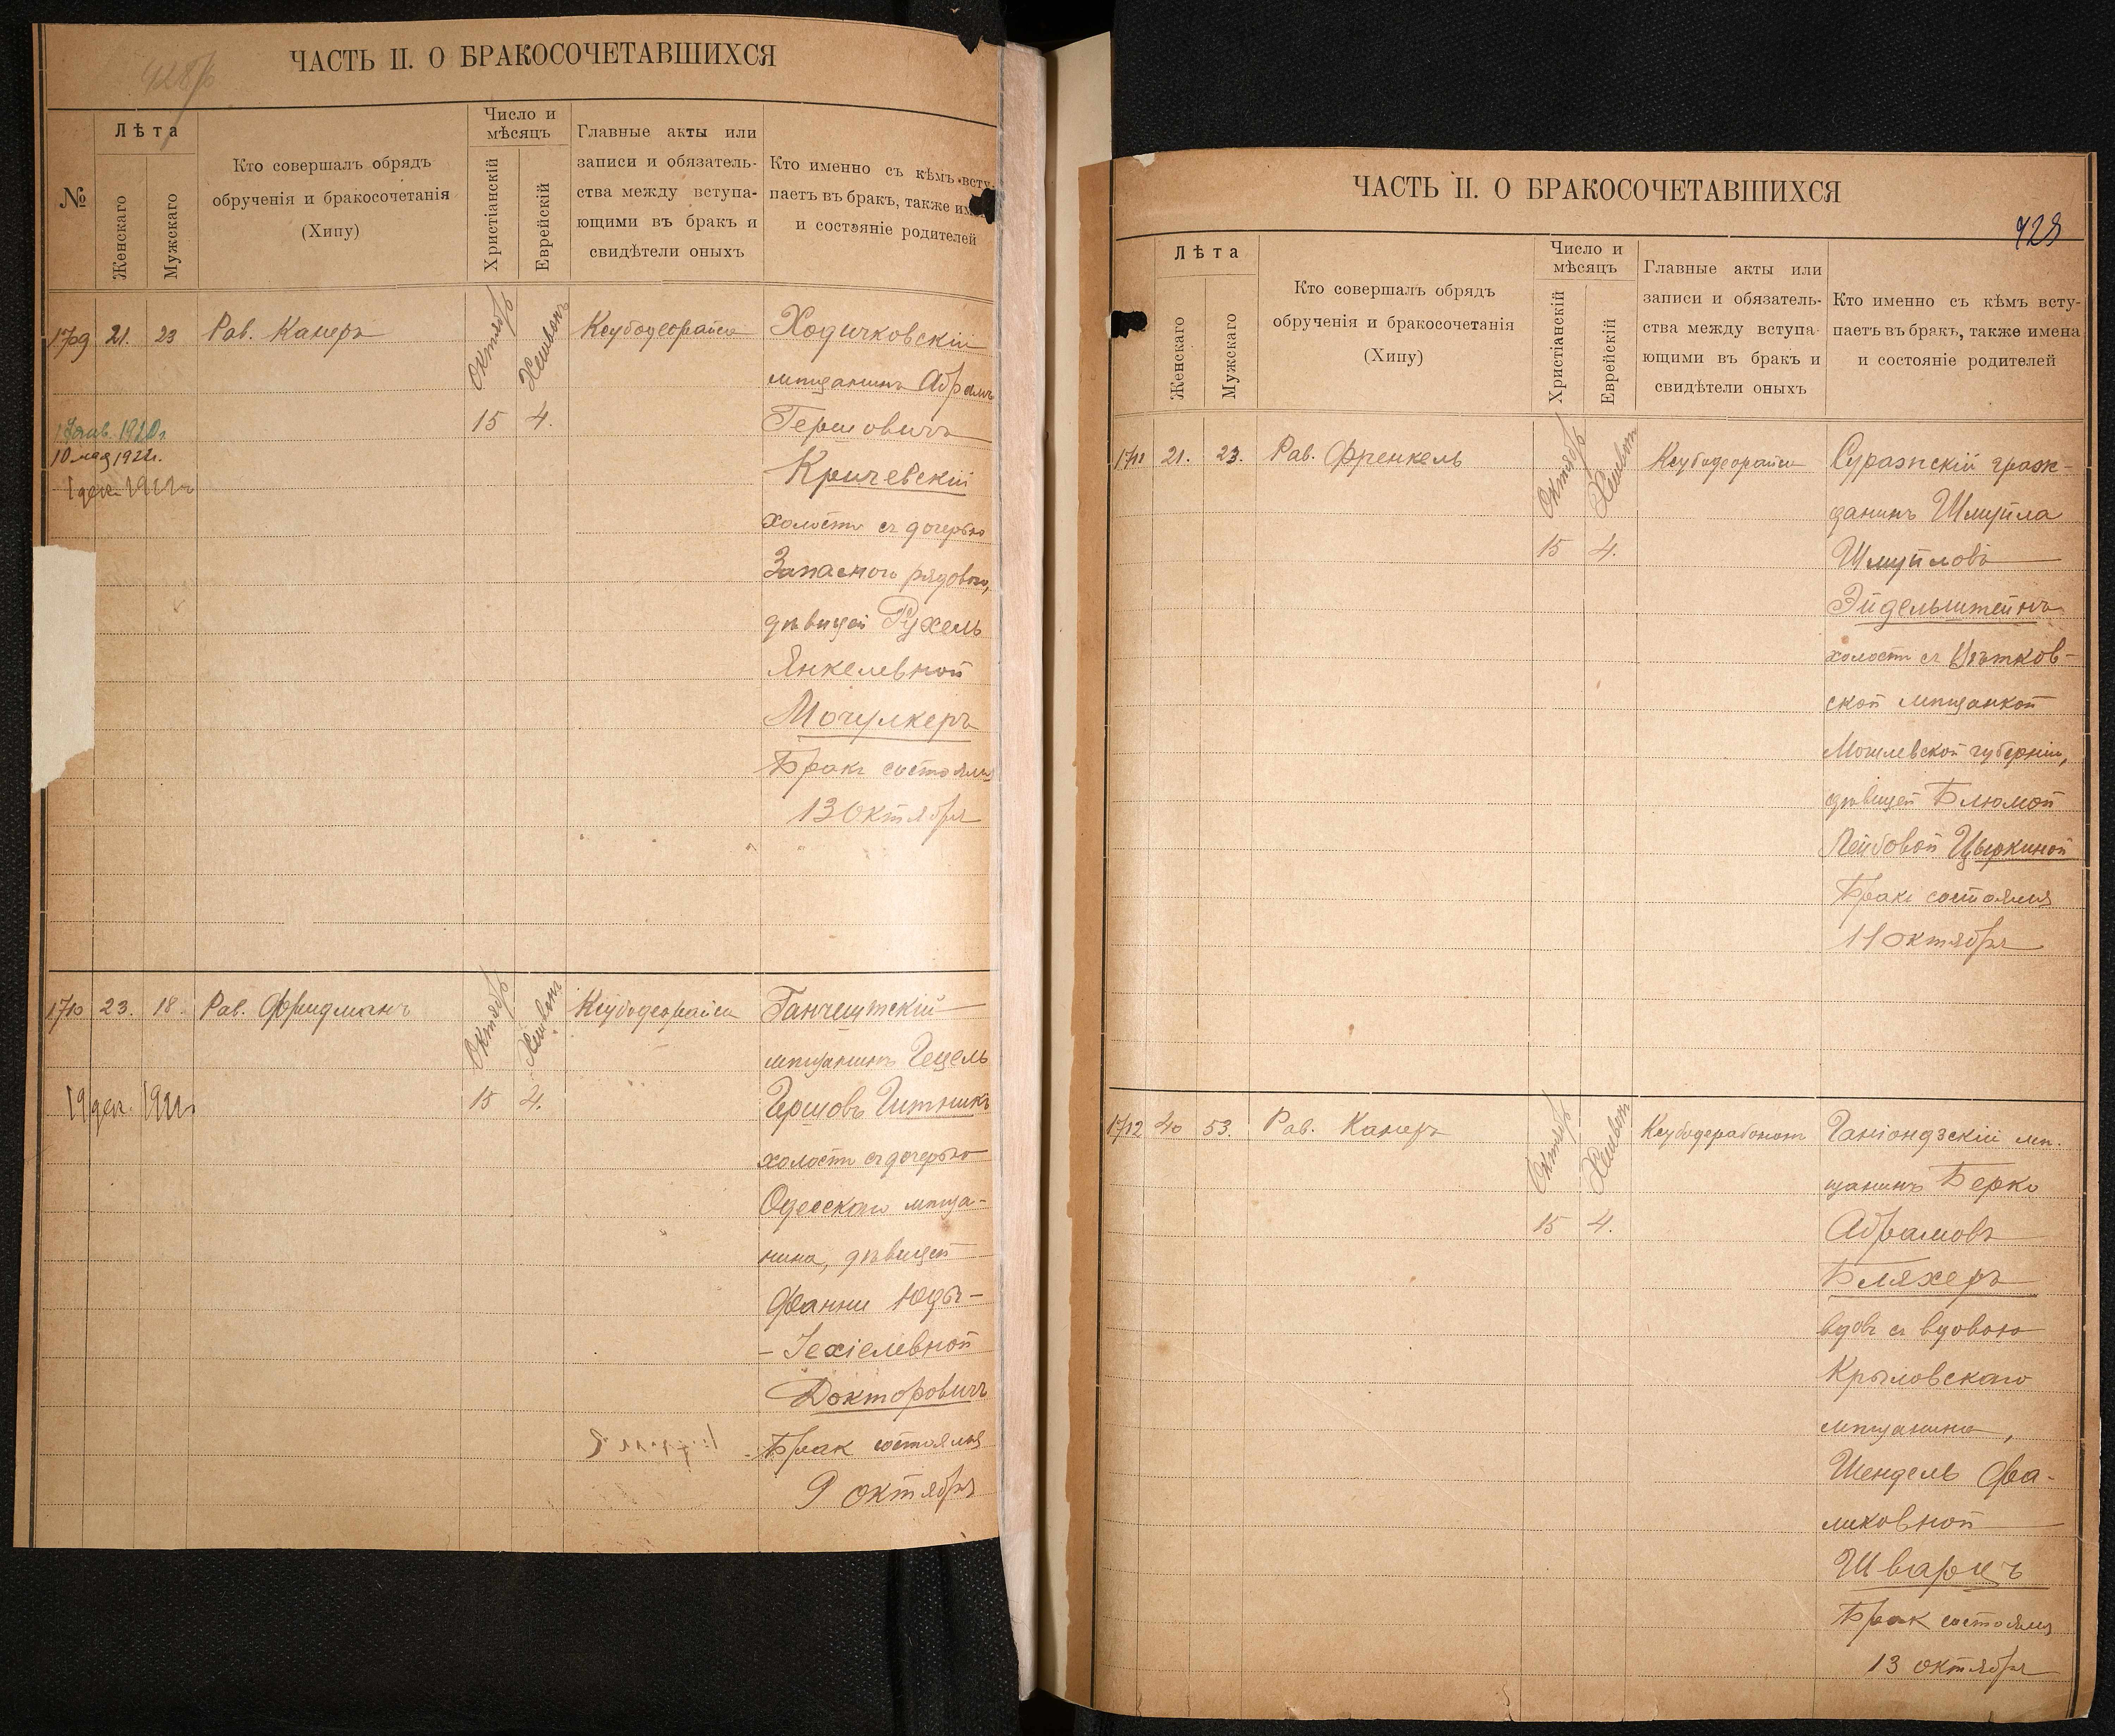 428/б
ЧАСТЬ II. О БРАКОСОЧЕТАВШИХСЯ
№
Лѣта
Женскаго
Мужскаго
Кто совершалъ обрядъ
обрученія и бракосочетанія
(Хипу)
Число и
мѣсяцъ
Христіанскій
Еврейскій
Главные акты или
записи и обязатель-
ства между вступа-
ющими въ бракъ и
свидѣтели оныхъ
Кто именно съ кѣмъ всту-
паетъ въ бракъ, также им
и состояніе родителей
1709 21. 23 Рав. Канеръ Октябрь Хешвонъ Ксубодеорайса Ходичковскій
мѣщанинъ Абрамъ
15 4. Гершовичъ
10 мая 1922г.
Кричевскій
холостъ съ дочерью
Запасного рядового,
дѣвицей Рухель
Янкелевной
Мочулкеръ
Бракъ состоялся
13 Октября
1710 23. 18. Рав. Фридманъ Октябрь Хешвонъ Ксубодеорайса Ганчештскій
мѣщанинъ Гецель
19 дек. 1922г. 15 4. Гершовъ Гитникъ
холостъ съ дочерью
Одесскаго мѣща-
нина, дѣвицей
Фанни Юдь-
-Іехіелевной
Докторовичъ
Бракъ состоялся
9 октября
ЧАСТЬ II. О БРАКОСОЧЕТАВШИХСЯ
428
Лѣта
Женскаго
Мужскаго
Кто совершалъ обрядъ
обрученія и бракосочетанія
(Хипу)
Число и
мѣсяцъ
Христіанскій
Еврейскій
Главные акты или
записи и обязатель-
ства между вступа-
ющими въ бракъ и
свидѣтели оныхъ
Кто именно съ кѣмъ всту-
паетъ въ бракъ, также имена
и состояніе родителей
1711 21. 23. Рав. Френкель Октябрь Хешвон Ксубодеорайса Суражскій граж-
данинъ Шмуйла
15 4. Шмуйловъ
Эйдельштейнъ
холостъ съ
ской мѣщанкой
Могилевской губерніи,
дѣвицей Блюмой
Лейбовой Цыркиной
Бракъ состоялся
11 октября
1712 40 53. Рав. Канеръ Октябрь Хешвон Ксубодерабонон Ганіондзскій мѣ-
щанинъ Берко
15 4. Абрамовъ
Бляхеръ
вдовъ съ вдовою
Крыловскаго
мѣщанина,
Шендель Фа-
ликовной
Шварцъ
Бракъ состоялся
13 октября